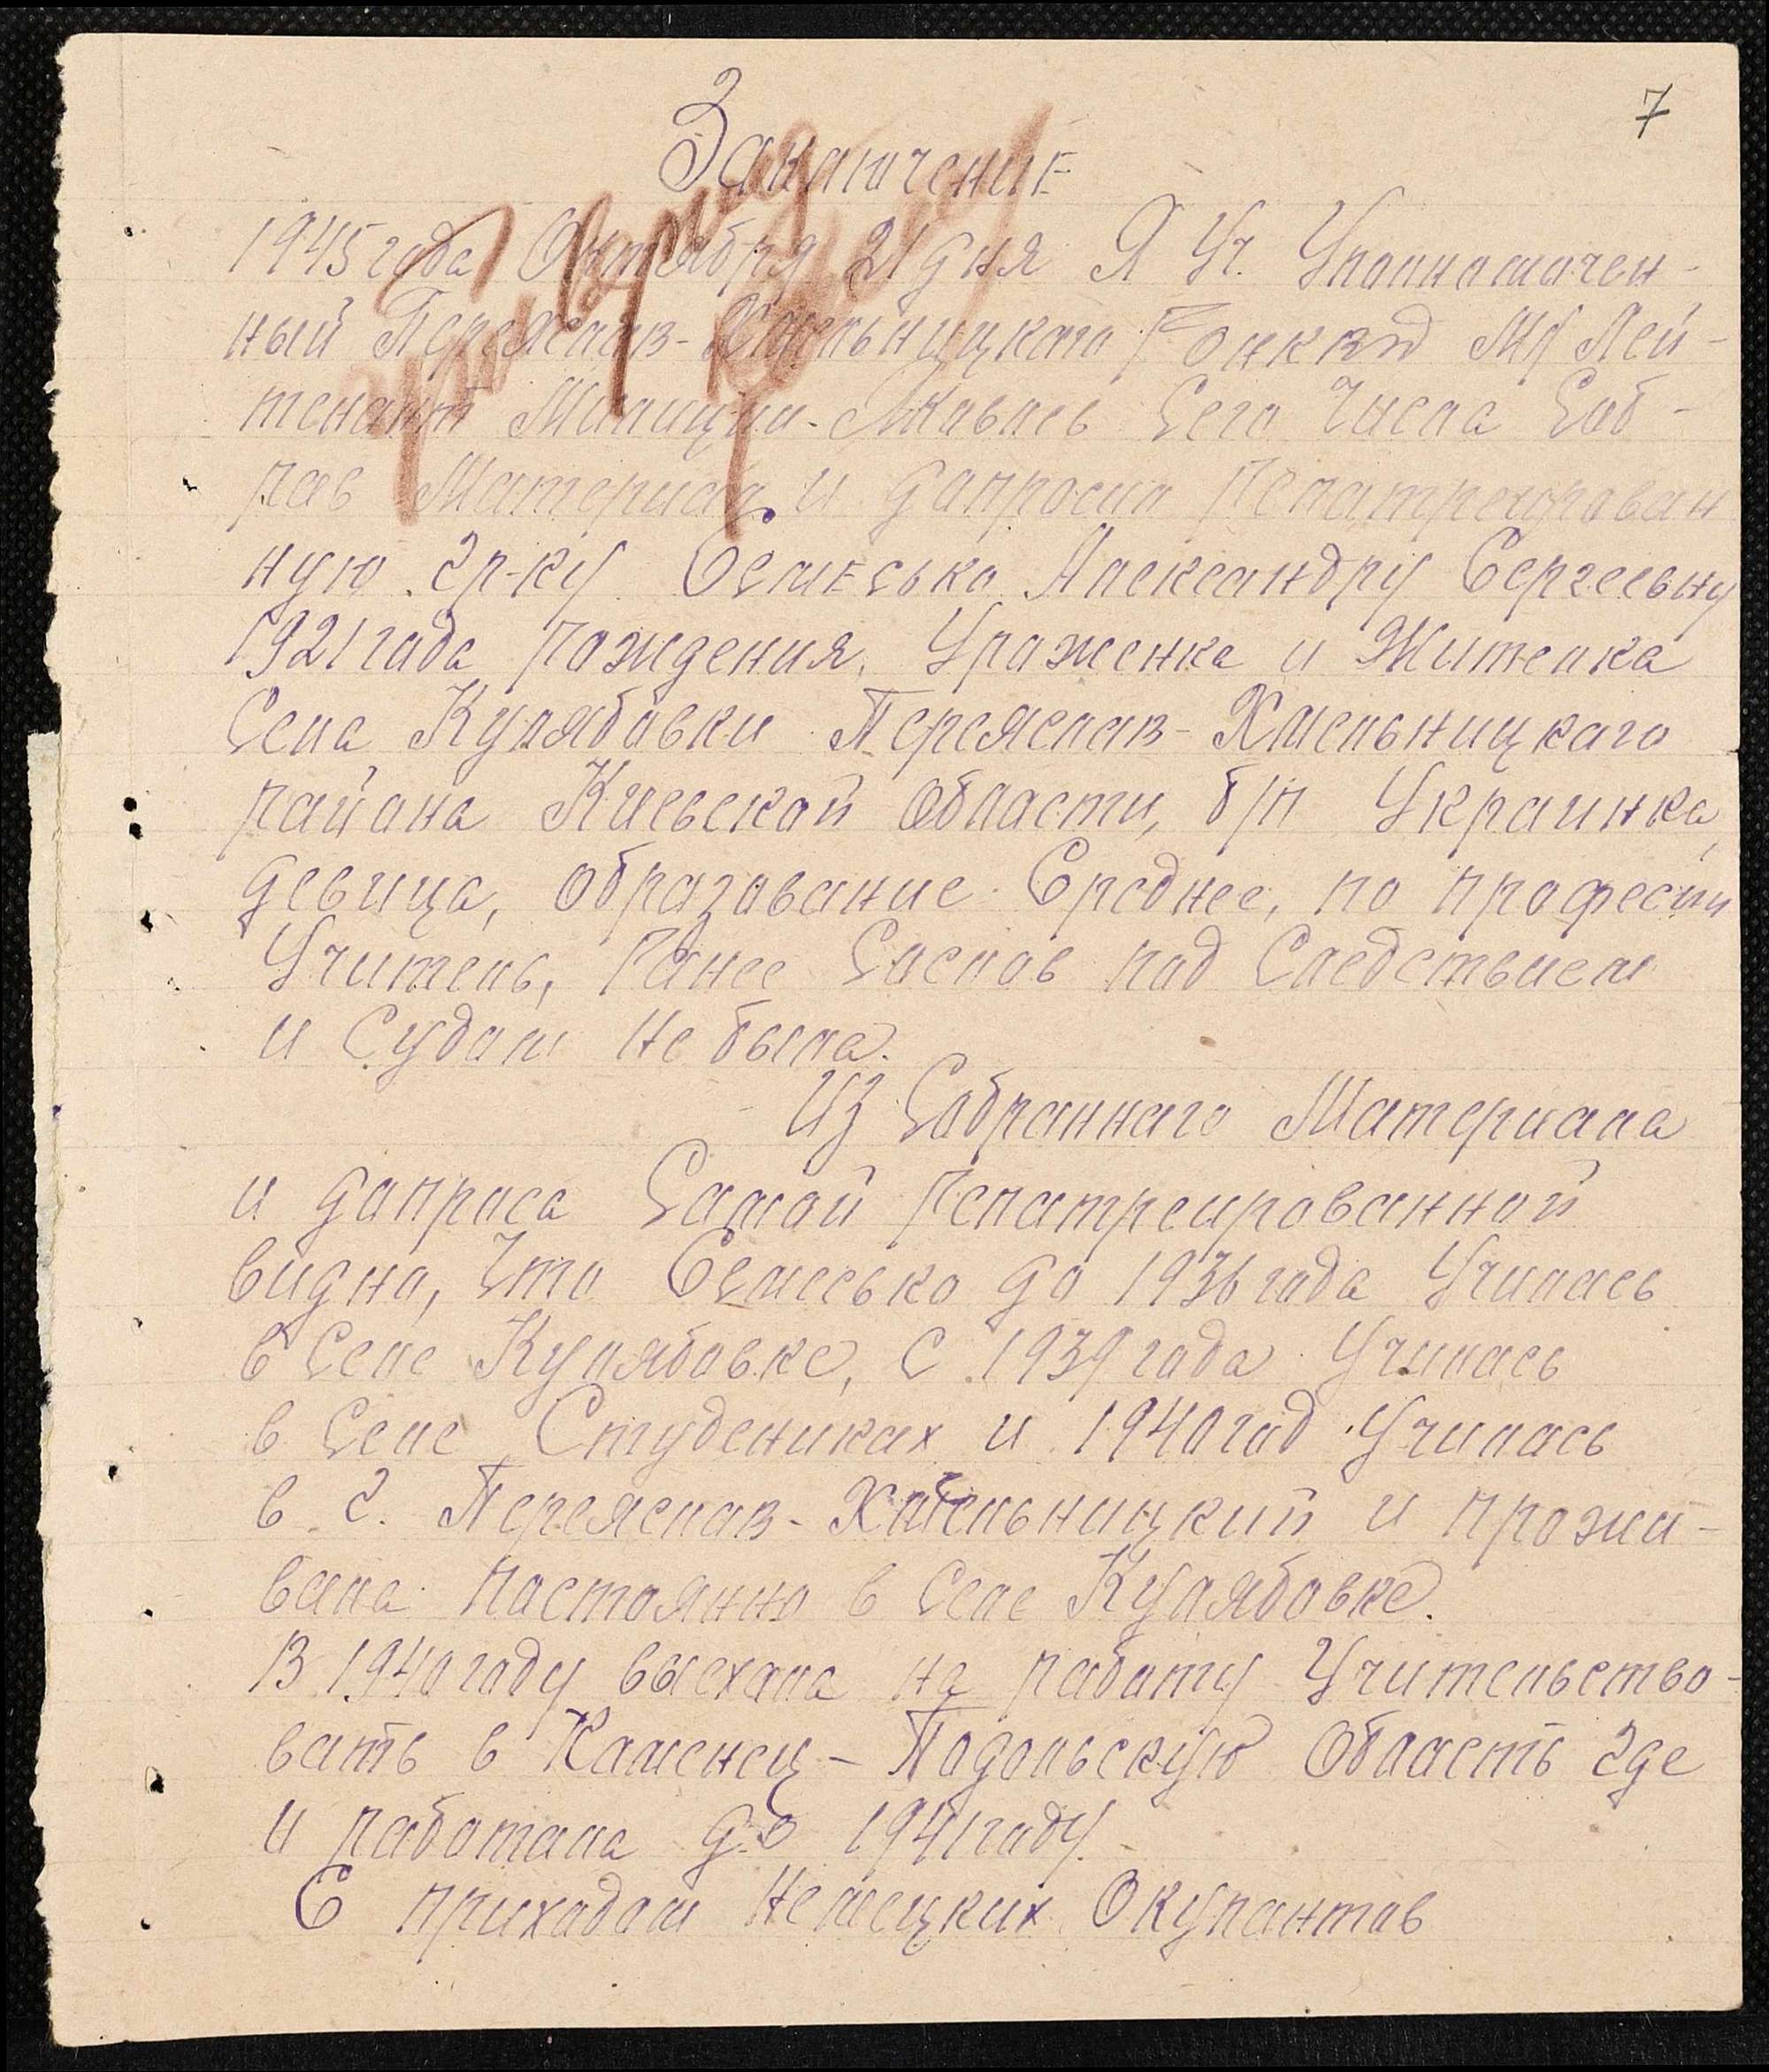 7
Заключение
1945 года Октября 21 дня Я Уч. Уполномочен-
ный Переяслав-Хмельницкого РОНКВД Мл Лей-
тенант Милиции Сего Числа Соб-
рав Материал и допросил Репатреирован
ную гр-ку Александру Сергеевну
1921 года рождения, Уроженка и Жителка
Села Кулябовки Переяслав-Хмельницкаго
района Киевской области, б/п Украинка,
девица, образование Среднее, по професии
Учитель, Ранее Саслов под Следствием
и Судом не была.
Из Собраннаго Материала
и допроса Самой Репатреированной
видно, Что до 1936 года Училась
в Селе Кулябовке, С 1939 года Училась
в Селе Студениках и 1940 год Училась
в г. Переяслав-Хмельницкий и прожи-
вала постоянно в Селе Кулябовке.
В 1940 году выехала на работу Учительство-
вать в Каменец-Подольскую Область где
и работала до 1941 году.
С приходом Немецких Окупантов